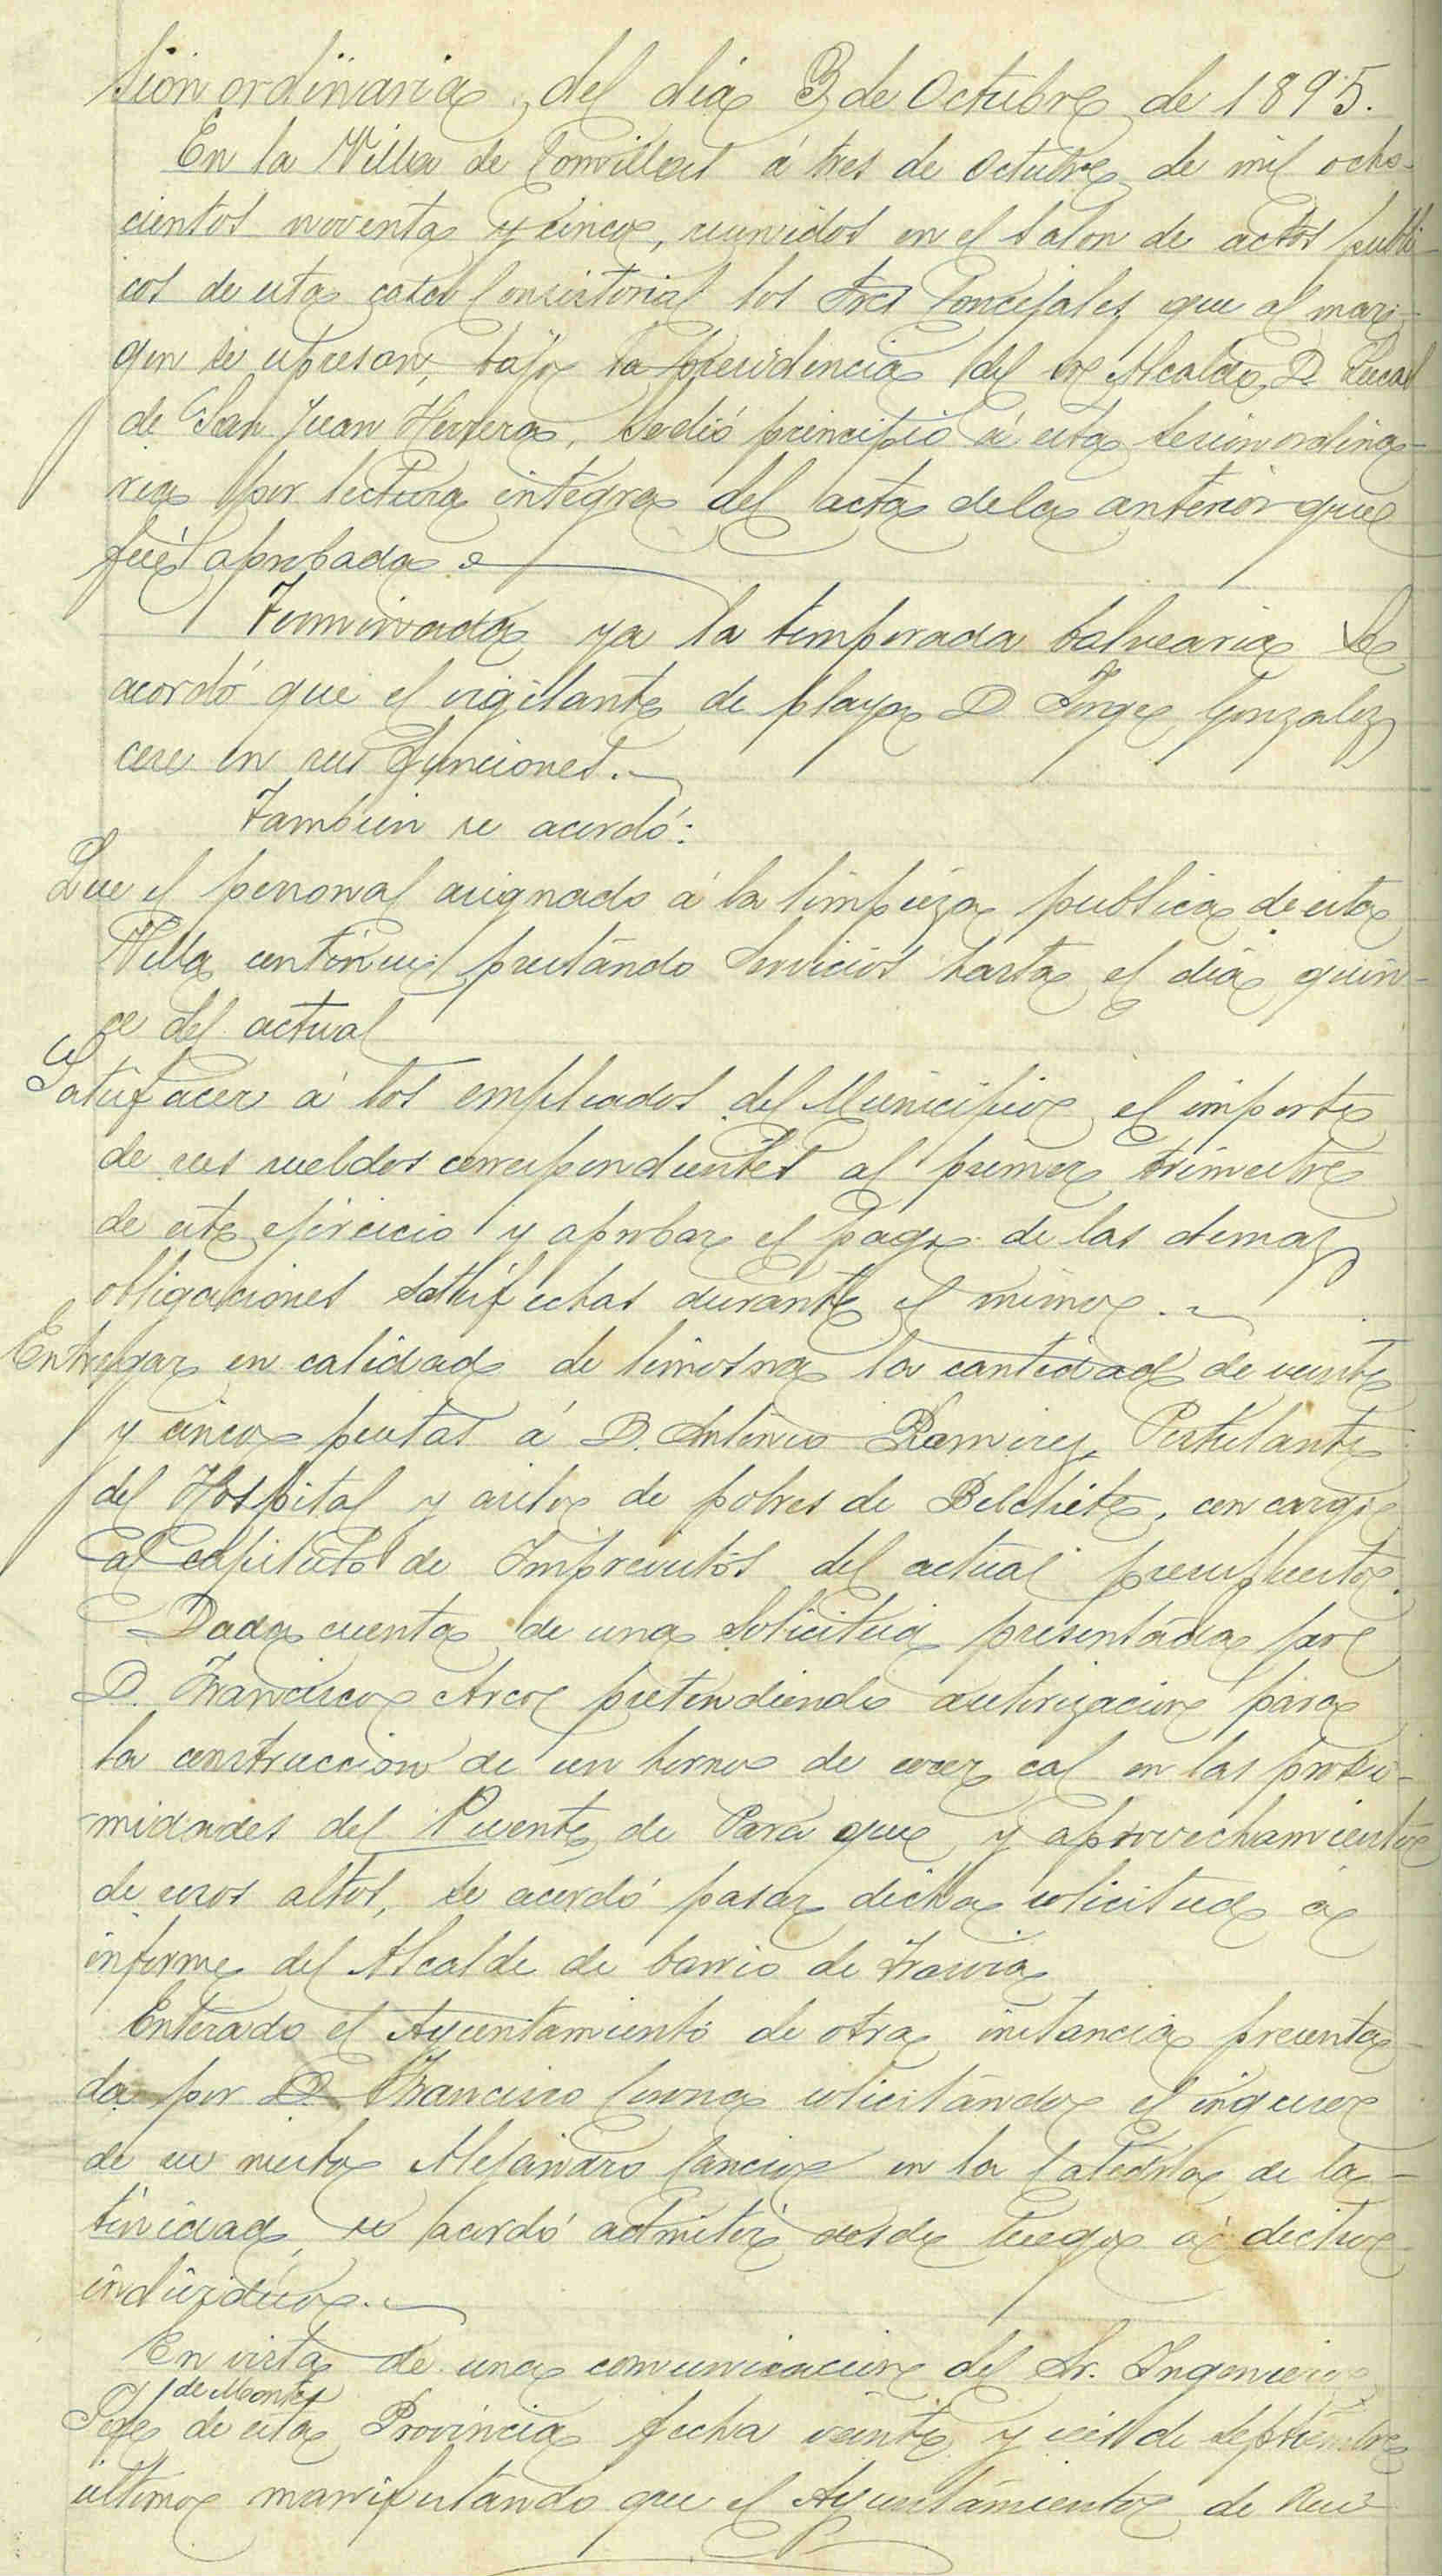 sion ordinaria, del dia 3 de Octubre de 1895.
En la Villa de Comillas á tres de Octubre de mil ocho-
cientos noventa y cinco, reunidos en el salon de actos publi-
cos de esta casa Consistorial los Sres Concejales que al mar-
gen se espresan, bajo la presidencia del Sr Alcalde D. Lucas
de San Juan Herrera, se dió principio á esta sesion ordina-
ria por lectura integra del acta de la anterior que
fué aprobada
Terminada ya la temporada balnearia se
acordó que el vigilante de playa D Jorge Gonzalez
cese en sus funciones.
Tambien se acordó:
Que el personal asignado á la limpieza publica de esta
Villa continue prestando servicios hasta el dia quin-
ce del actual
Satisfacer á los empleados del Municipio el importe
de sus sueldos correspondientes al primer trimestre
de este ejercicio y aprobar el pago de las demas
obligaciones satisfechas durante el mismo.
Entregar en calidad de limosna la cantidad de veinte
y cinco pesetas á D. Antonio Ramirez, Postulante
del Hospital y asilo de pobres de Belchite, con cargo
al capitulo de Imprevistos del actual presupuesto.
Dada cuenta de una solicitud presentada por
D. Francisco Arco pretendiendo autorizacion para
la construccion de un horno de cocer cal en las proxi-
midades del Puente de Para que y aprovechamiento
de unos altos, se acordó pasar dicha solicitud á
informe del Alcalde de barrio de Trasvia
Enterado el Ayuntamiento de otra instancia presenta-
da por D Francisco solicitando el ingreso
de su nieto Alejandro Cancio en la Catedra de la-
tinidad, se acordó admitir desde luego á dicho
individuo.
En vista de una comunicacion del Sr. Ingeniero
de Montes
Jefe de esta Provincia fecha veinte y seis de Septiembre
ultimo manifestando que el Ayuntamiento de Rui-